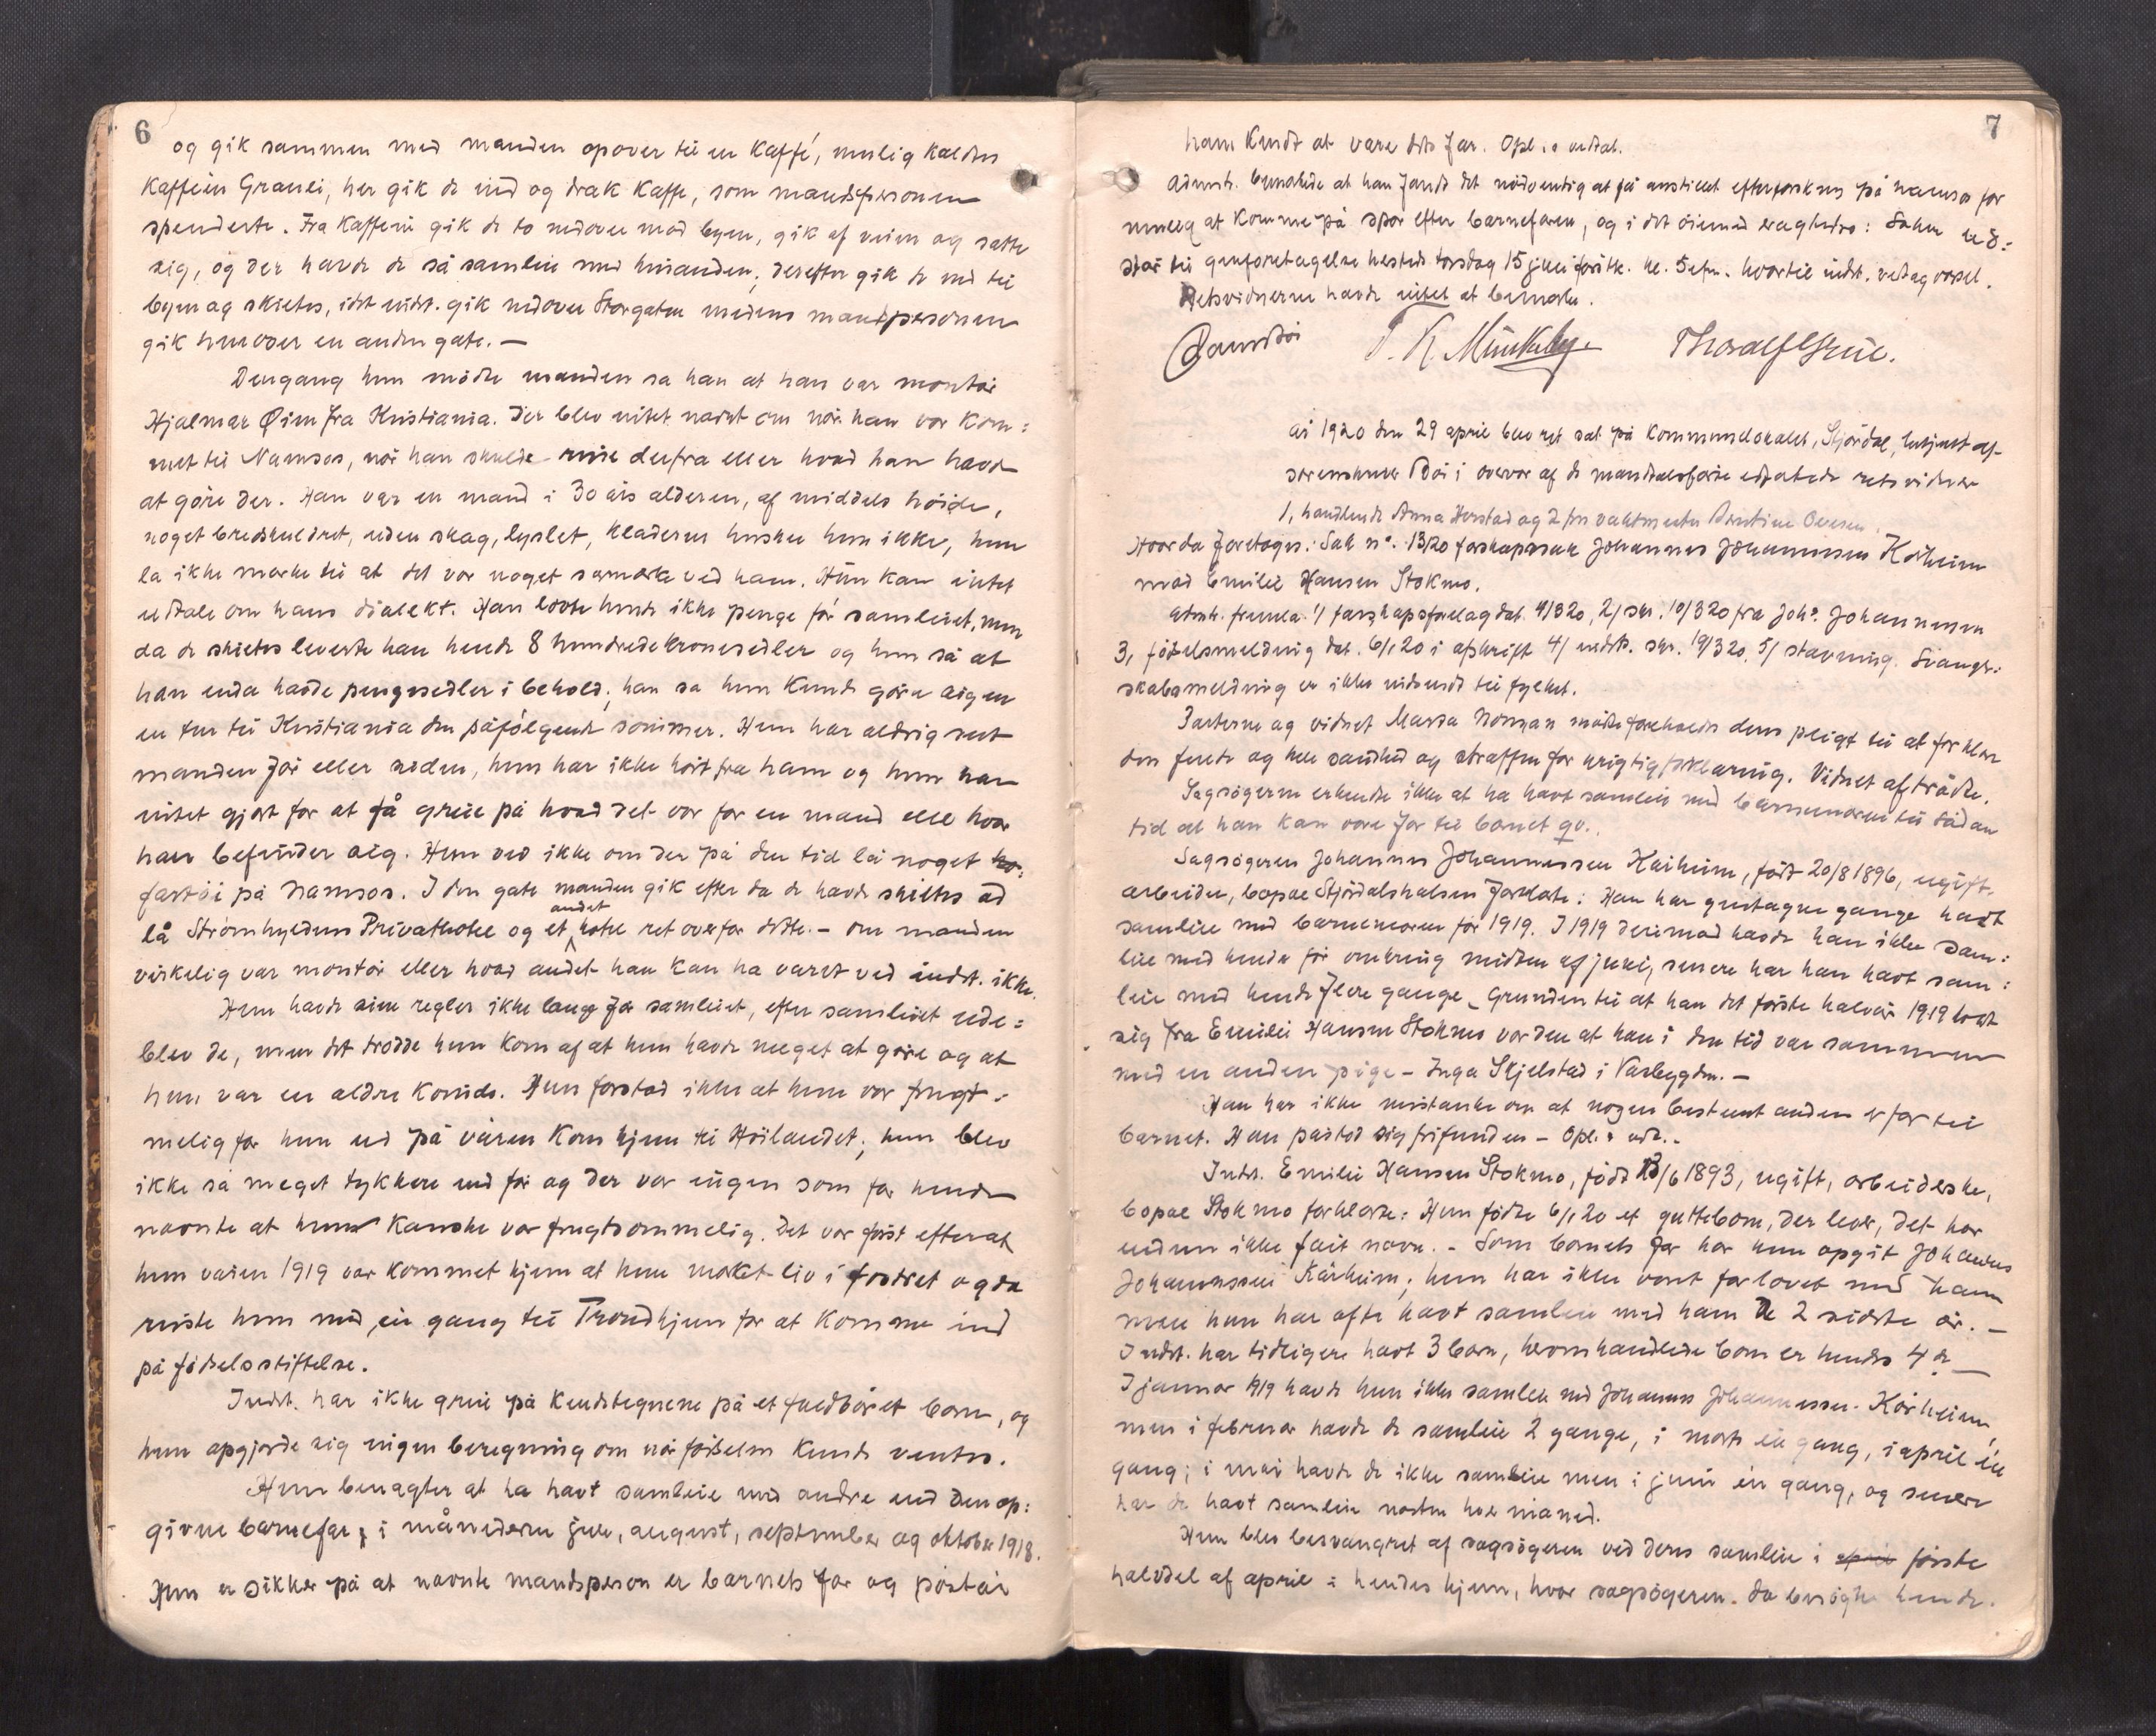 6
og gik sammen med manden opover til en kaffé, mulig kaldes
kafféen Granli, her gik de ind og drak kaffe, som mandspersonen
spenderte. Fra kafféen gik de to nedover mod byen, gik af veien og satte
sig, og der havde de så samleie med hinanden; derefter gik de ned til
byen og skiltes, idet indst. gik nedover Storgaten medens mandspersonen
gik henover en anden gate. —
Dengang hun mødte manden sa han at han var montør
Hjalmar Øien fra Kristiania. Der blev intet nævnt om når han var kom=
met til Namsos, når han skulde reise derfra eller hvad han havde
at gøre der. Han var en mand i 30 års alderen, af middels høide,
noget bredskuldret, uden skæg, lyslet, klæderne husker hun ikke, hun
la ikke mærke til at det var noget særmærke ved ham. Hun kan intet
udtale om hans dialekt. Han lovte hende ikke penge før samleiet, men
da de skiltes leverte han hende 8 hundredekronesedler og hun så at
han enda havde pengesedler i behold; han sa hun kunde gøre sig en
en tur til Kristiania den påfølgende sommer. Hun har aldrig seet
manden før eller siden, hun har ikke hørt fra ham og hun har
intet gjort for at få greie på hvad det var for en mand eller hvor
han befinder sig. Hun ved ikke om der på den tid lå noget
fartøi på Namsos. I den gate manden gik efter da de havde skiltes ad
lå Strømhyldens Privathotel og et andet hotel ret overfor dette. – om manden
virkelig var montør eller hvad andet han kan ha været ved indst. ikke.
Hun havde sine regler ikke længe før samleiet, efter samleiet ude=
blev de, men det trodde hun kom af at hun havde meget at gøre og at
hun var en ældre kvinde. Hun forstod ikke at hun var frugt=
melig før hun ud på våren kom hjem til Høilandet; hun blev
ikke så meget tykkere end før og der var ingen som for hende
nævnte at hun kanske var frugtsommelig. Det var først efterat
hun våren 1919 var kommet hjem at hun mærket liv i fostret og da
reiste hun med en gang til Trondhjem for at komme ind
på fødselsstiftelse.
Indst. har ikke greie på kendetegnene på et fuldbåret barn, og
hun opgjorde sig ingen beregning om når fødselen kunde ventes.
Hun benægter at ha havt samleie med andre end den op=
givne barnefar i månederne juli, august, september og oktober 1918.
Hun er sikker på at nævnte mandsperson er barnets far og påstår
7
ham kendt at være dets far. Opl. o vedtat.
Admstr. bemærkede at han fandt det nødvendig at få anstillet efterforskning på Namsos for
mulig at komme på spor efter barnefaren, og i det øiemed eragtedes: Saken ud=
står til genforetagelse hersteds torsdag 15 juli førstk. kl. 5 efm. hvortil indst. vedtog varsel.
Retsvidnerne havde intet at bemærke.
År 1920 den 29 april blev ret sat på kommunelokalet, Stjørdal, betjent af
sorenskriver Bøi i overvær af de mandtalsførte edfæstede retsvidner
1, handlende Anna Herstad og 2 fru vaktmester Berntine Ovesen.
Hvorda foretoges: Sak nº. 13/20 farskapssak Johannes Johannessen Kårheim
mod Emilie Hansen Stokmo.
Admstr. fremla 1/ farskapsforelæg dat. 4/3 20, 2/ skr. 10/3 20 fra Johs. Johannessen
3, fødselsmelding dat. 6/1 20 i afskrift 4/ indst. skr. 19/3 20. 5/ stævning. Svanger=
skabsmelding er ikke indsendt til fylket.
Parterne og vidnet Marta Norman møtte foreholdt deres pligt til at forklare
den fulde og hele sandhed og straffen for urigtig forklaring. Vidnet aftrådte.
Sagsøgeren erkendte ikke at ha havt samleie med barnemoren til sådan
tid at han kan være far til barnet qv.
Sagsøgeren Johannes Johannessen Kårheim, født 20/8 1896, ugift,
arbeider, bopæl Stjørdalshalsen forklarte: Han har gentagne gange havt
samleie med barnemoren før 1919. I 1919 derimod havde han ikke sam=
leie med hende før omkring midten af juni, senere har han havt sam=
leie med hende flere gange. Grunden til at han det første halvår 1919 holdt
sig fra Emilie Hansen Stokmo var den at han i den tid var sammen
med en anden pige – Inga Skjelstad i Værbygden. —
Han har ikke mistanke om at nogen bestemt anden er far til
barnet. Han påstod sig frifunden – Opl. o vedt. –
Indst. Emilie Hansen Stokmo, født 13/6 1893, ugift, arbeiderske,
bopæl Stokmo forklarte: Hun fødte 6/1 20 et guttebarn, der lever, det har
endnu ikke fåit navn. – Som barnets far har hun opgit Johannes
Johannessen Kårheim; hun har ikke været forlovet med ham
men hun har ofte havt samleie med ham de 2 sidste år. —
Indst. har tidligere havt 3 barn, heromhandlede barn er hendes 4de —
I januar 1919 havde hun ikke samleie med Johannes Johannessen Kårheim,
men i februar havde de samleie 2 gange, i marts en gang, i april én
gang; i mai havde de ikke samleie men i juni én gang, og senere
har de havt samleie næsten hver måned.
Hun blev besvangret af sagsøgeren ved deres samleie i første
halvdel af april i hendes hjem, hvor sagsøgeren da besøgte hende.